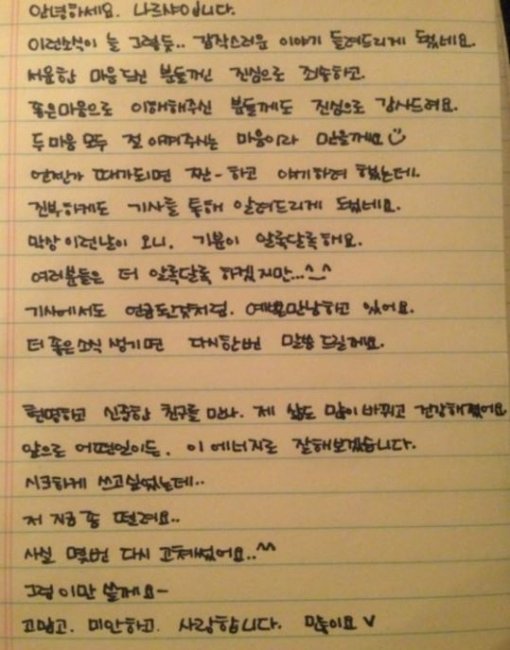 안녕하세요. 나르샤입니다.
이런소식이 늘 그렇듯.. 갑작스러운 이야기 들려드리게 됐네요.
서운한 마음 드신 분들껜 진심으로 죄송하고.
좋은마음으로 이해해주신 분들께도 진심으로 감사드려요.
두마음 모두 절 아껴주시는 마음이라 믿을께요
언젠가 때가되면 짠-하고 얘기하려 했는데.
진부하게도 기사를 통해 알려드리게 됐네요.
막상 이런날이 오니. 기분이 알록달록해요.
여러분들은 더 알록달록 하겠지만...^_^
기사에서도 언급된것처럼. 예쁘게만남하고 있어요.
더 좋은소식 생기면 다시한번 말씀 드릴게요.
현명하고 신중한 친구를 만나. 제 삶도 많이바뀌고 건강해졌어요
앞으로 어떤일이든. 이 에너지로 잘해보겠습니다.
시크하게 쓰고싶었는데..
저 지금 좀 떨려요..
사실 몇번 다시 고쳐썼어요..^^
그럼 이만 쓸게요~
고맙고. 미안하고. 사랑합니다. 많이요 V